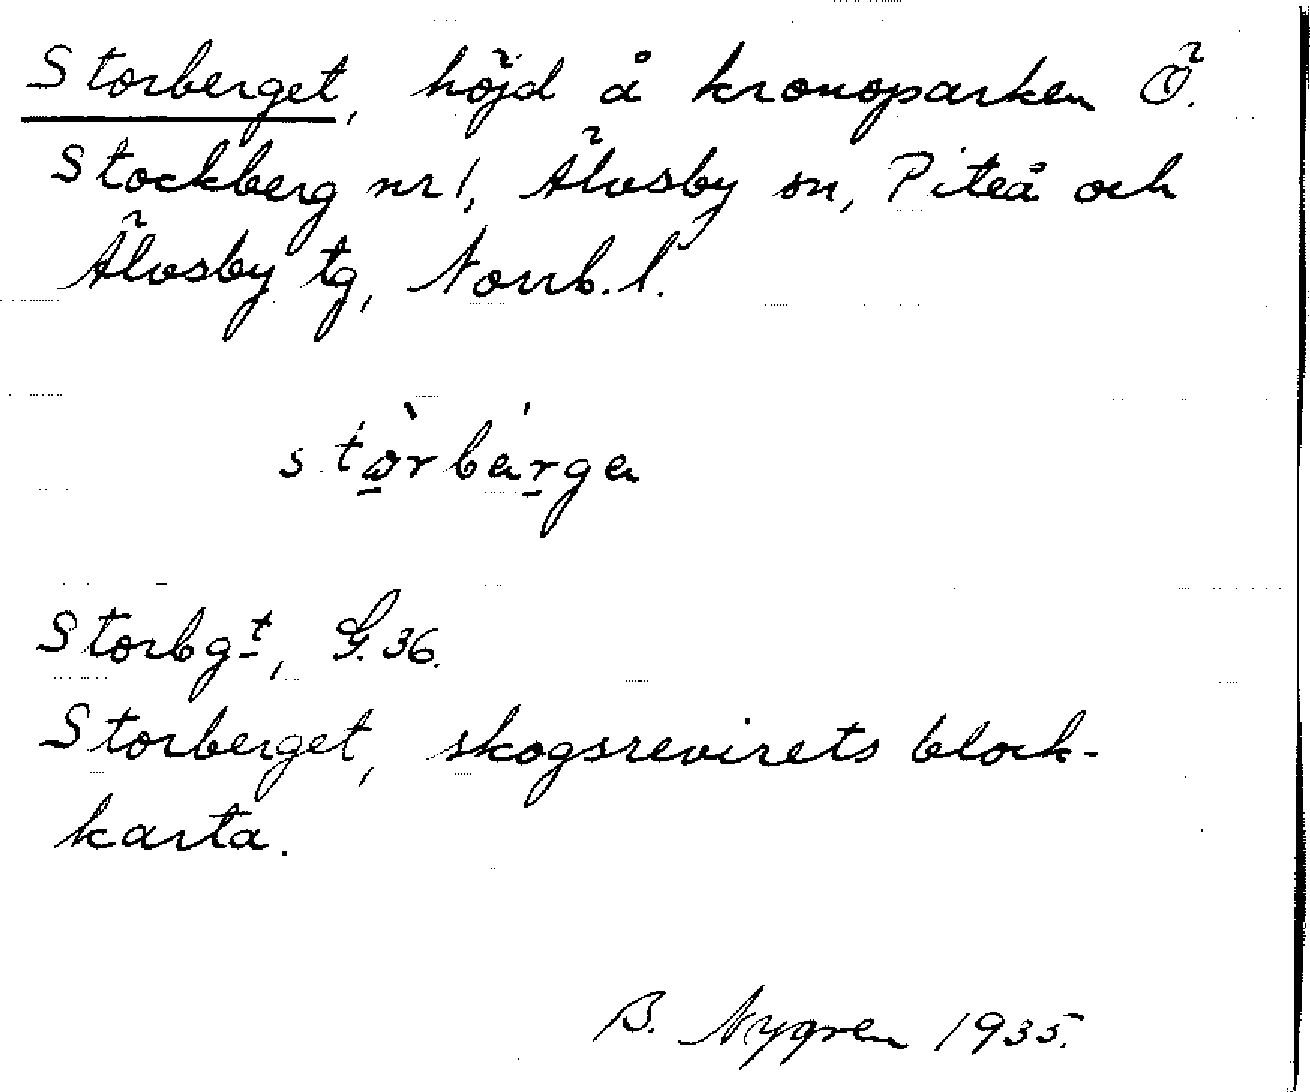 Storberget, höjd å kronoparken Ö.
Stockberg nr 1, Älvsby sn, Piteå och
Älvsby tg, Norrb. l.
stòrbárga
Storbgt, G. 36.
Storberget, skogsrevirets block-
karta.
B. Nygren 1935.